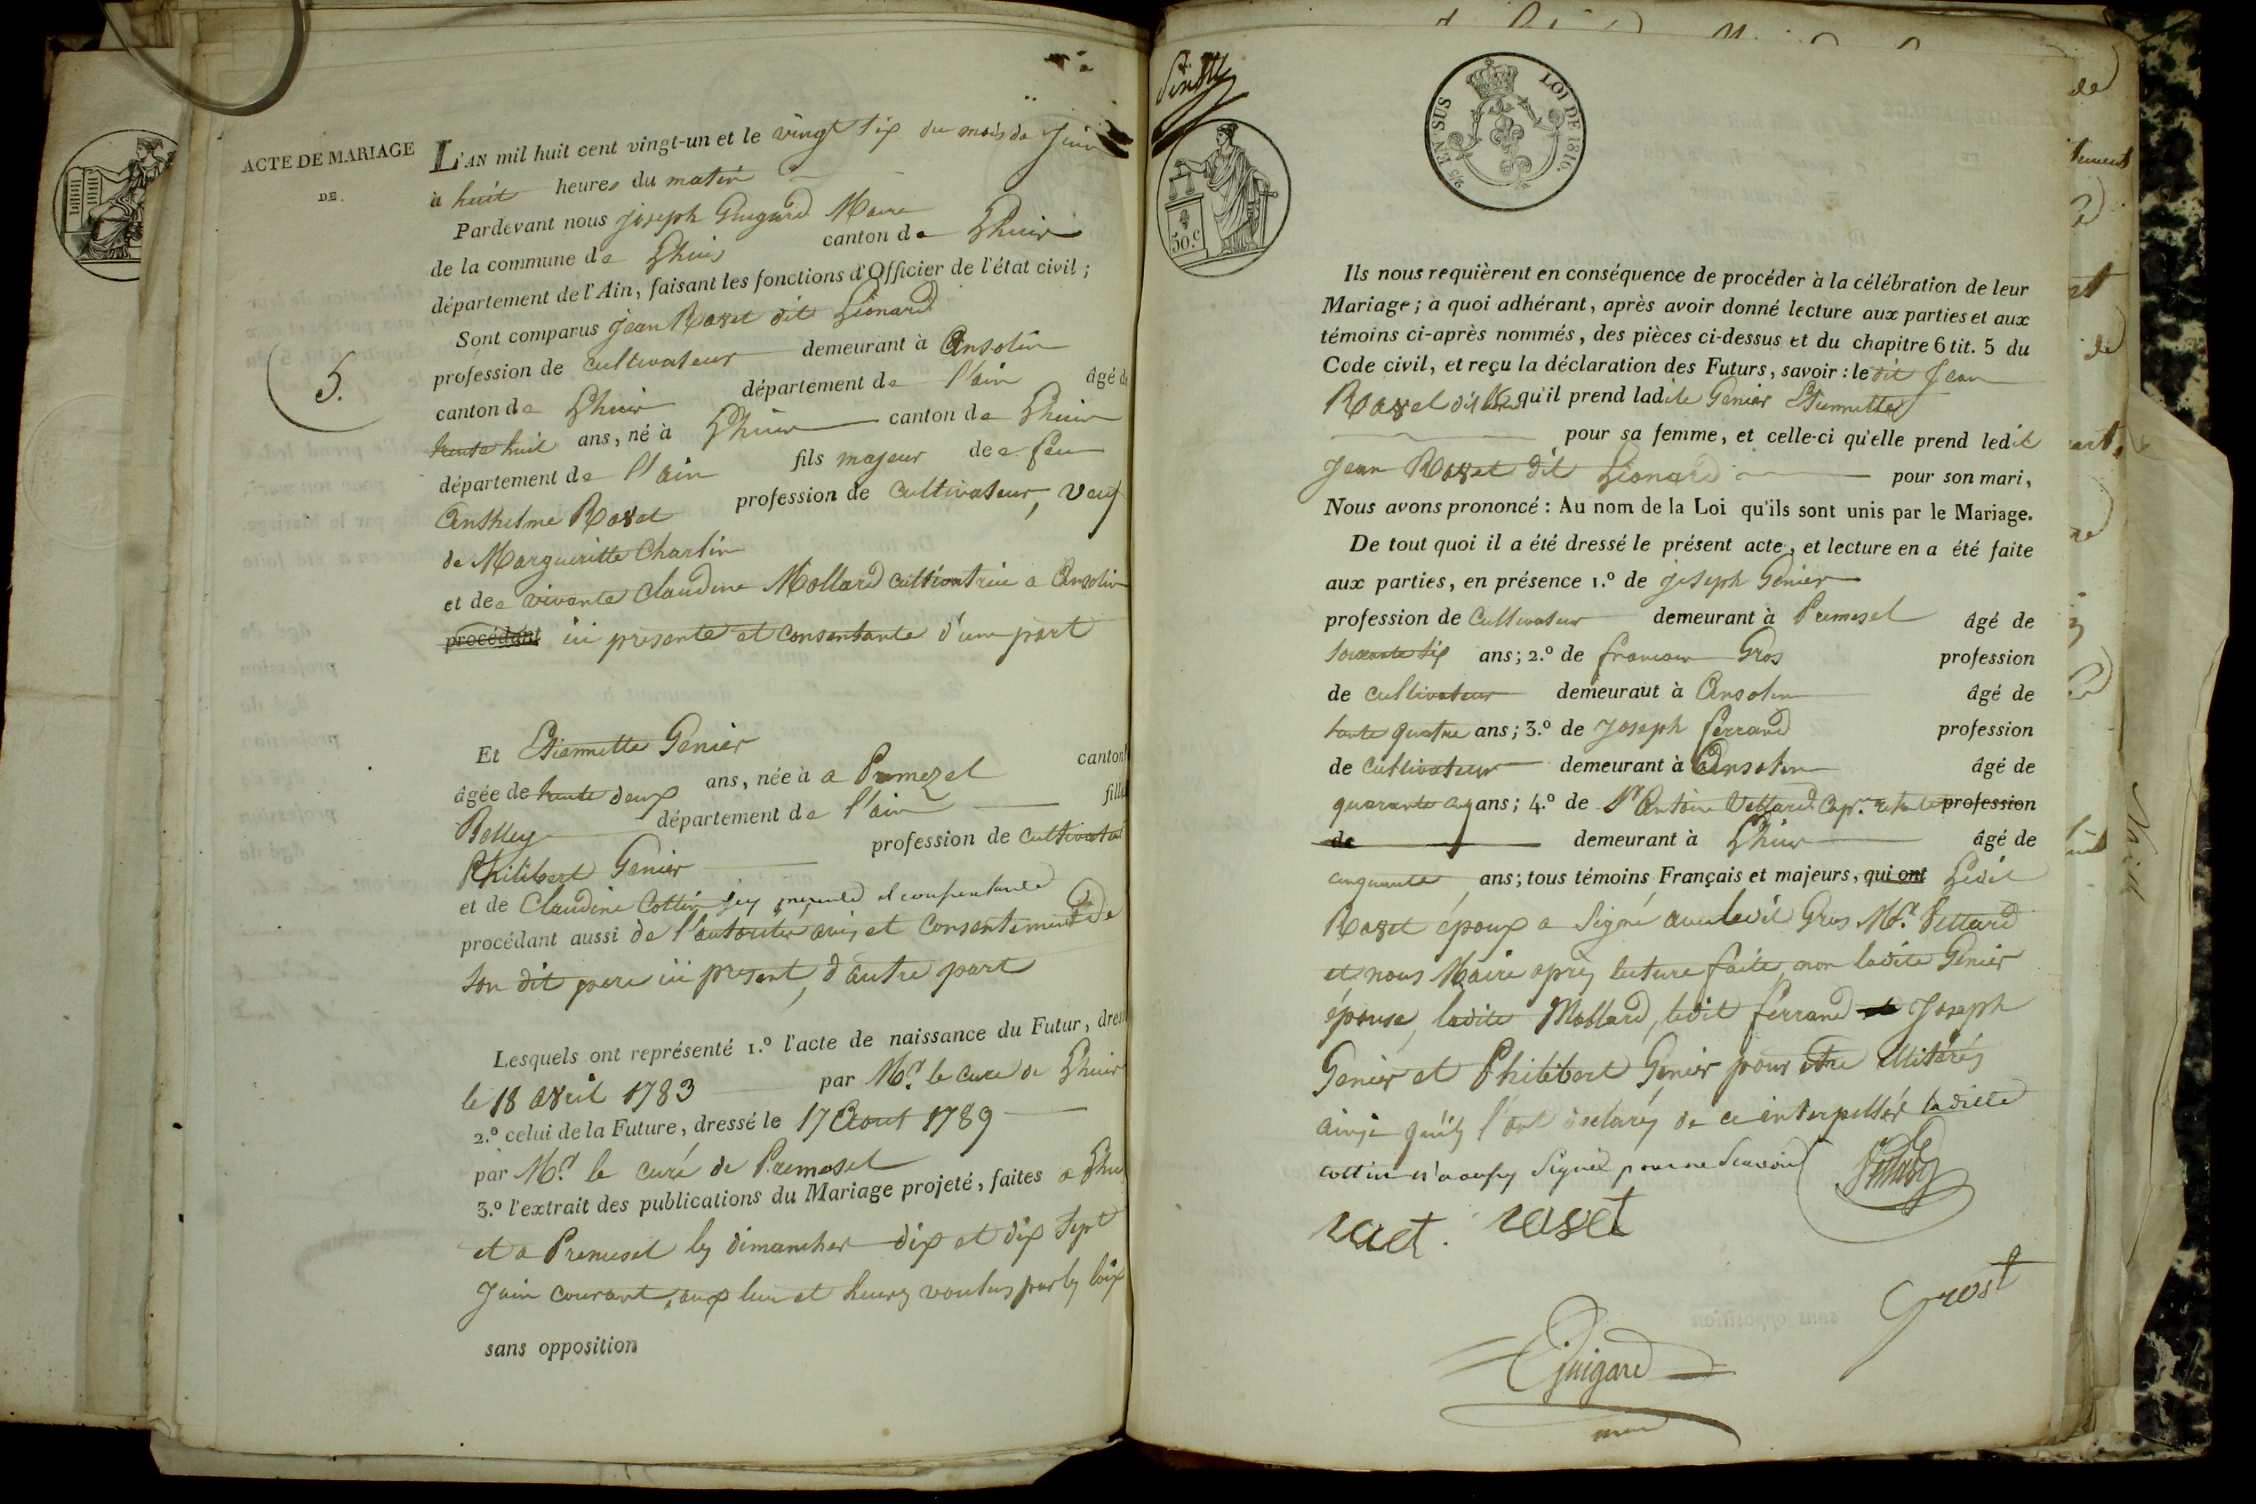 ACTE DE MARIAGE
DE
5.
L'AN mil huit cent vingt-un et le vingt six du mois de Juin
à huit heures du matin
Pardevant nous joseph Guigard Maire
de la commune de Lhuis canton de Lhuis
département de l'Ain, faisant les fonctions d'Officier de l'état civil;
Sont comparus jean Rozet dit Léonard
profession de cultivateur demeurant à Ansolin
canton de Lhuis département de l'ain âgé de
trente huit ans, né à Lhuis canton de Lhuis
département de l'ain fils majeur de feu
Anthelme Rozet profession de Cultivateur, veuf
de Margueritte Charlin
et de vivante Claudine Mollard cultivatrice a Ansolin
procédant ici presente et consentante d'une part
Et Etiennette Genier
âgée de trente deux ans, née à a Premezel canton
Belley département de l'ain fille
Philibert Genier profession de cultivateur
et de Claudine Cottin icy presente et consentante
procédant aussi de l'autorité avis et consentement de
son dit pere ici present, d'autre part
Lesquels ont représenté 1.º l'acte de naissance du Futur, dressé
le 18 avril 1783 par Mr. le curé de Lhuis
2.º celui de la Future, dressé le 17 Aout 1789
par Mr. le curé de Premesel
3.º l'extrait des publications du Mariage projeté, faites a Lhuis
et a Premesel les dimanches dix et dix sept
Juin courant, aux lieu et heures voulus par les loix
sans opposition
30.c
EN SUS
LOI DE 1816.
Ils nous requièrent en conséquence de procéder à la célébration de leur
Mariage; à quoi adhérant, après avoir donné lecture aux parties et aux
témoins ci-après nommés, des pièces ci-dessus et du chapitre 6 tit. 5 du
Code civil, et reçu la déclaration des Futurs, savoir : le dit Jean
Rozet dit qu'il prend ladite Genier Etiennette
pour sa femme, et celle-ci qu'elle prend ledit
Jean Rozet dit Léonard pour son mari,
Nous avons prononcé : Au nom de la Loi qu'ils sont unis par le Mariage.
De tout quoi il a été dressé le présent acte, et lecture en a été faite
aux parties, en présence 1.º de joseph Genier
profession de Cultivateur demeurant à Premesel âgé de
soixante six ans; 2.º de francois Gros profession
de cultivateur demeurant à Ansolin âgé de
trente quatre ans; 3.º de Joseph ferrand profession
de cultivateur demeurant à Ansolin âgé de
quarante cinq ans; 4.º de Sr. Antoine Vettard Cap.ne profession
de demeurant à Lhuis âgé de
cinquante ans; tous témoins Français et majeurs, qui ont Ledit
Rozet époux a signé avec ledit Gros Mr. Vettard
et nous Maire après lecture faite, non ladite Genier
épouse, ladite Mollard, ledit ferrand Joseph
Genier et Philibert Genier pour être illitérés
ainsi qu'ils l'ont declarés de ce interpellés ladite
cottin n'a aussy signé pour ne scavoir
rozet
Grost
Guigard